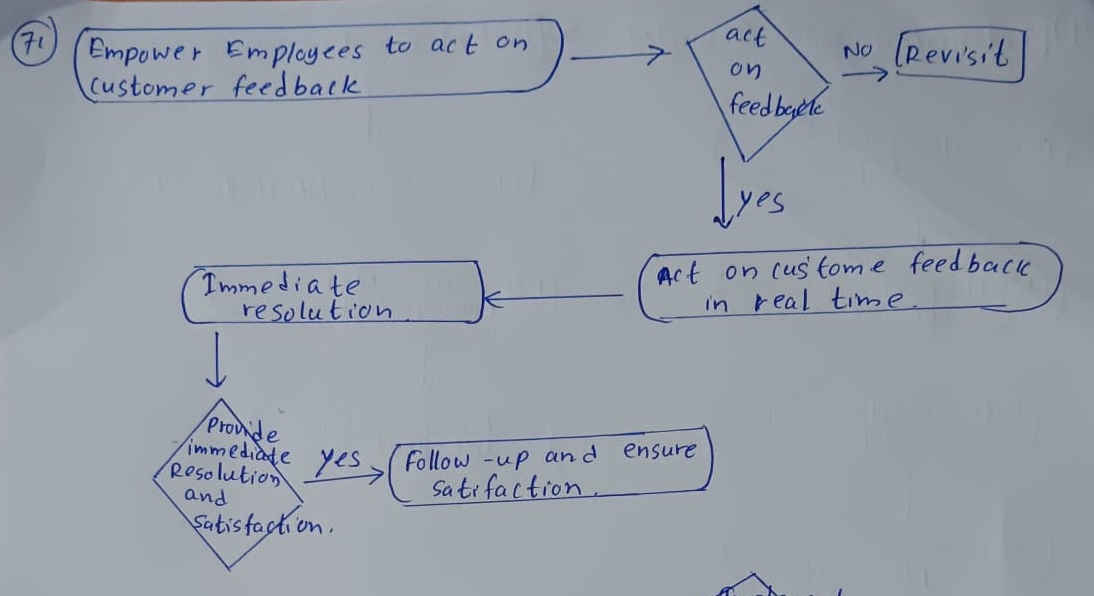 71
Empower Employees to act on
customer feedback
act
on
feedback
No
Revisit
yes
Act on custome feedback
in real time.
Immediate
resolution.
Provide
immediate
Resolution
and
Satisfaction.
yes
Follow-up and ensure
satifaction.